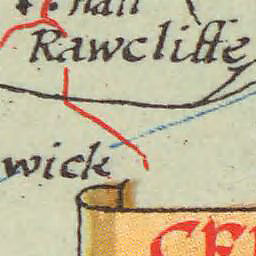 Hall
Rawcliffe
wick